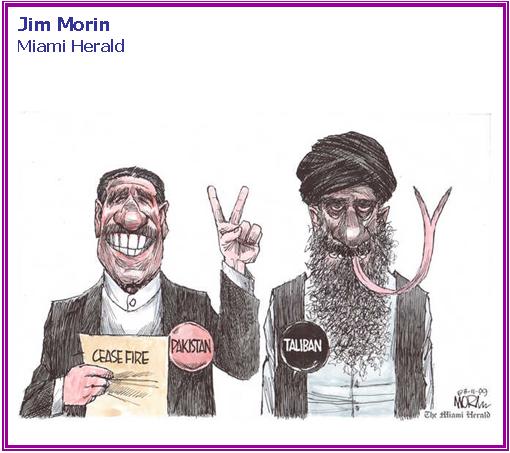 Jim Morin
Miami Herald
CEASE FIRE
PAKISTAN
TALIBAN
MORIN
The Miami Herald